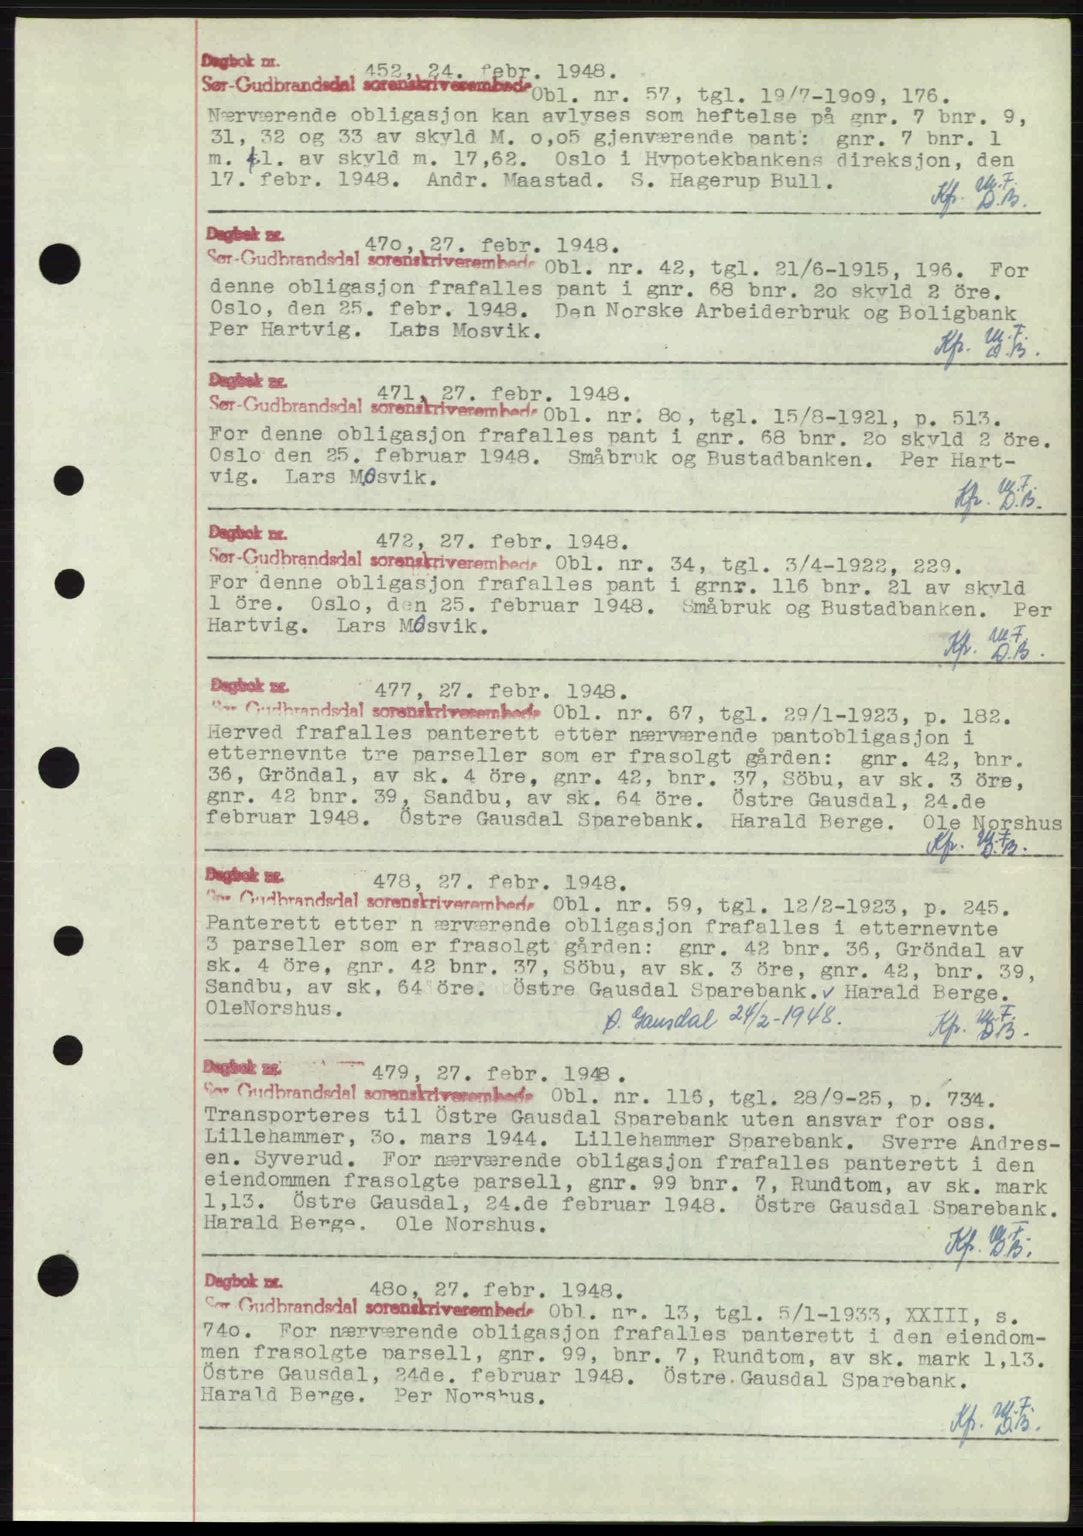 Dagbok nr.
452, 24. febr. 1948.
Sør-Gudbrandsdal sorenskriverembede Obl. nr. 57, tgl. 19/7-19o9, 176.
Nærværende obligasjon kan avlyses som heftelse på gnr. 7 bnr. 9,
31, 32 og 33 av skyld M. o,o5 gjenværende pant: gnr. 7 bnr. 1
m. fl. av skyld m. 17,62. Oslo i Hypotekbankens direksjon, den
17. febr. 1948. Andr. Maastad. S. Hagerup Bull.
Kfr. M.F.
D.B.
Dagbok nr.
47o, 27. febr. 1948.
Sør-Gudbrandsdal sorenskriverembede Obl. nr. 42, tgl. 21/6-1915, 196. For
denne obligasjon frafalles pant i gnr. 68 bnr. 2o skyld 2 öre.
Oslo, den 25. febr. 1948. Den Norske Arbeiderbruk og Boligbank
Per Hartvig. Lars Mosvik.
Kfr. M.F.
D.B.
Dagbok nr.
471, 27. febr. 1948.
Sør-Gudbrandsdal sorenskriverembede Obl. nr. 8o, tgl. 15/8-1921, p. 513.
For denne obligasjon frafalles pant i gnr. 68 bnr. 2o skyld 2 öre.
Oslo den 25. februar 1948. Småbruk og Bustadbanken. Per Hart-
vig. Lars Mosvik.
Kfr. M.F.
D.B.
Dagbok nr.
472, 27. febr. 1948.
Sør-Gudbrandsdal sorenskriverembede Obl. nr. 34, tgl. 3/4-1922, 229.
For denne obligasjon frafalles pant i grnr. 116 bnr. 21 av skyld
1 öre. Oslo, den 25. februar 1948. Småbruk og Bustadbanken. Per
Hartvig. Lars Mosvik.
Kfr. M.F.
D.B.
Dagbok nr.
477, 27. febr. 1948.
Sør-Gudbrandsdal sorenskriverembede Obl. nr. 67, tgl. 29/1-1923, p. 182.
Herved frafalles panterett etter nærværende pantobligasjon i
etternevnte tre parseller som er frasolgt gården: gnr. 42, bnr.
36, Gröndal, av sk. 4 öre, gnr. 42, bnr. 37, Söbu, av sk. 3 öre,
gnr. 42 bnr. 39, Sandbu, av sk. 64 öre. Östre Gausdal, 24.de
februar 1948. Östre Gausdal Sparebank. Harald Berge. Ole Norshus
Kfr. M.F.
D.B.
Dagbok nr.
478, 27. febr. 1948.
Sør-Gudbrandsdal sorenskriverembede Obl. nr. 59, tgl. 12/2-1923, p. 245.
Panterett etter n ærværende obligasjon frafalles i etternevnte
3 parseller som er frasolgt gården: gnr. 42 bnr. 36, Gröndal av
sk. 4 öre, gnr. 42 bnr. 37, Söbu, av sk. 3 öre, gnr. 42, bnr. 39,
Sandbu, av sk. 64 öre. Östre Gausdal Sparebank. Harald Berge.
OleNorshus.
Ø. Gausdal 24/2-1948.
Kfr. M.F.
D.B.
Dagbok nr.
479, 27. febr. 1948.
Sør-Gudbrandsdal sorenskriverembede Obl. nr. 116, tgl. 28/9-25, p. 734.
Transporteres til Östre Gausdal Sparebank uten ansvar for oss.
Lillehammer, 3o. mars 1944. Lillehammer Sparebank. Sverre Andres-
en. Syverud. For nærværende obligasjon frafalles panterett i den
eiendommen frasolgte parsell, gnr. 99 bnr. 7, Rundtom, av sk. mark
1,13. Östre Gausdal, 24.de februar 1948. Östre Gausdal Sparebank.
Harald Berge. Ole Norshus.
Kfr. M.F.
D.B.
Dagbok nr.
48o, 27. febr. 1948.
Sør-Gudbrandsdal sorenskriverembede Obl. nr. 13, tgl. 5/1-1933, XXIII, s.
74o. For nærværende obligasjon frafalles panterett i den eiendom-
men frasolgte parsell, gnr. 99, bnr. 7, Rundtom, av sk. mark 1,13.
Östre Gausdal, 24de. februar 1948. Östre Gausdal Sparebank.
Harald Berge. Per Norshus.
Kfr. M.F.
D.B.